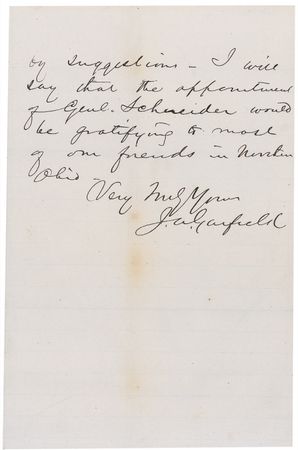 by suggestions – I will
say that the appointment
of Genl. Schneider would
be gratifying to most
of our friends in Northern
Ohio
Very Truly Yours
J. A. Garfield